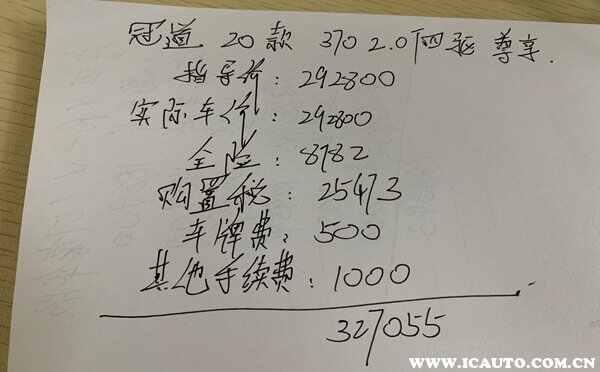 冠道 20款 370 2.0 四驱 尊享.
指导价: 292800
实际车价: 292800
全险: 8782
购置税: 25473
车牌费: 500
其他手续费: 1000
327055
WWW.ICAUTO.COM.CN